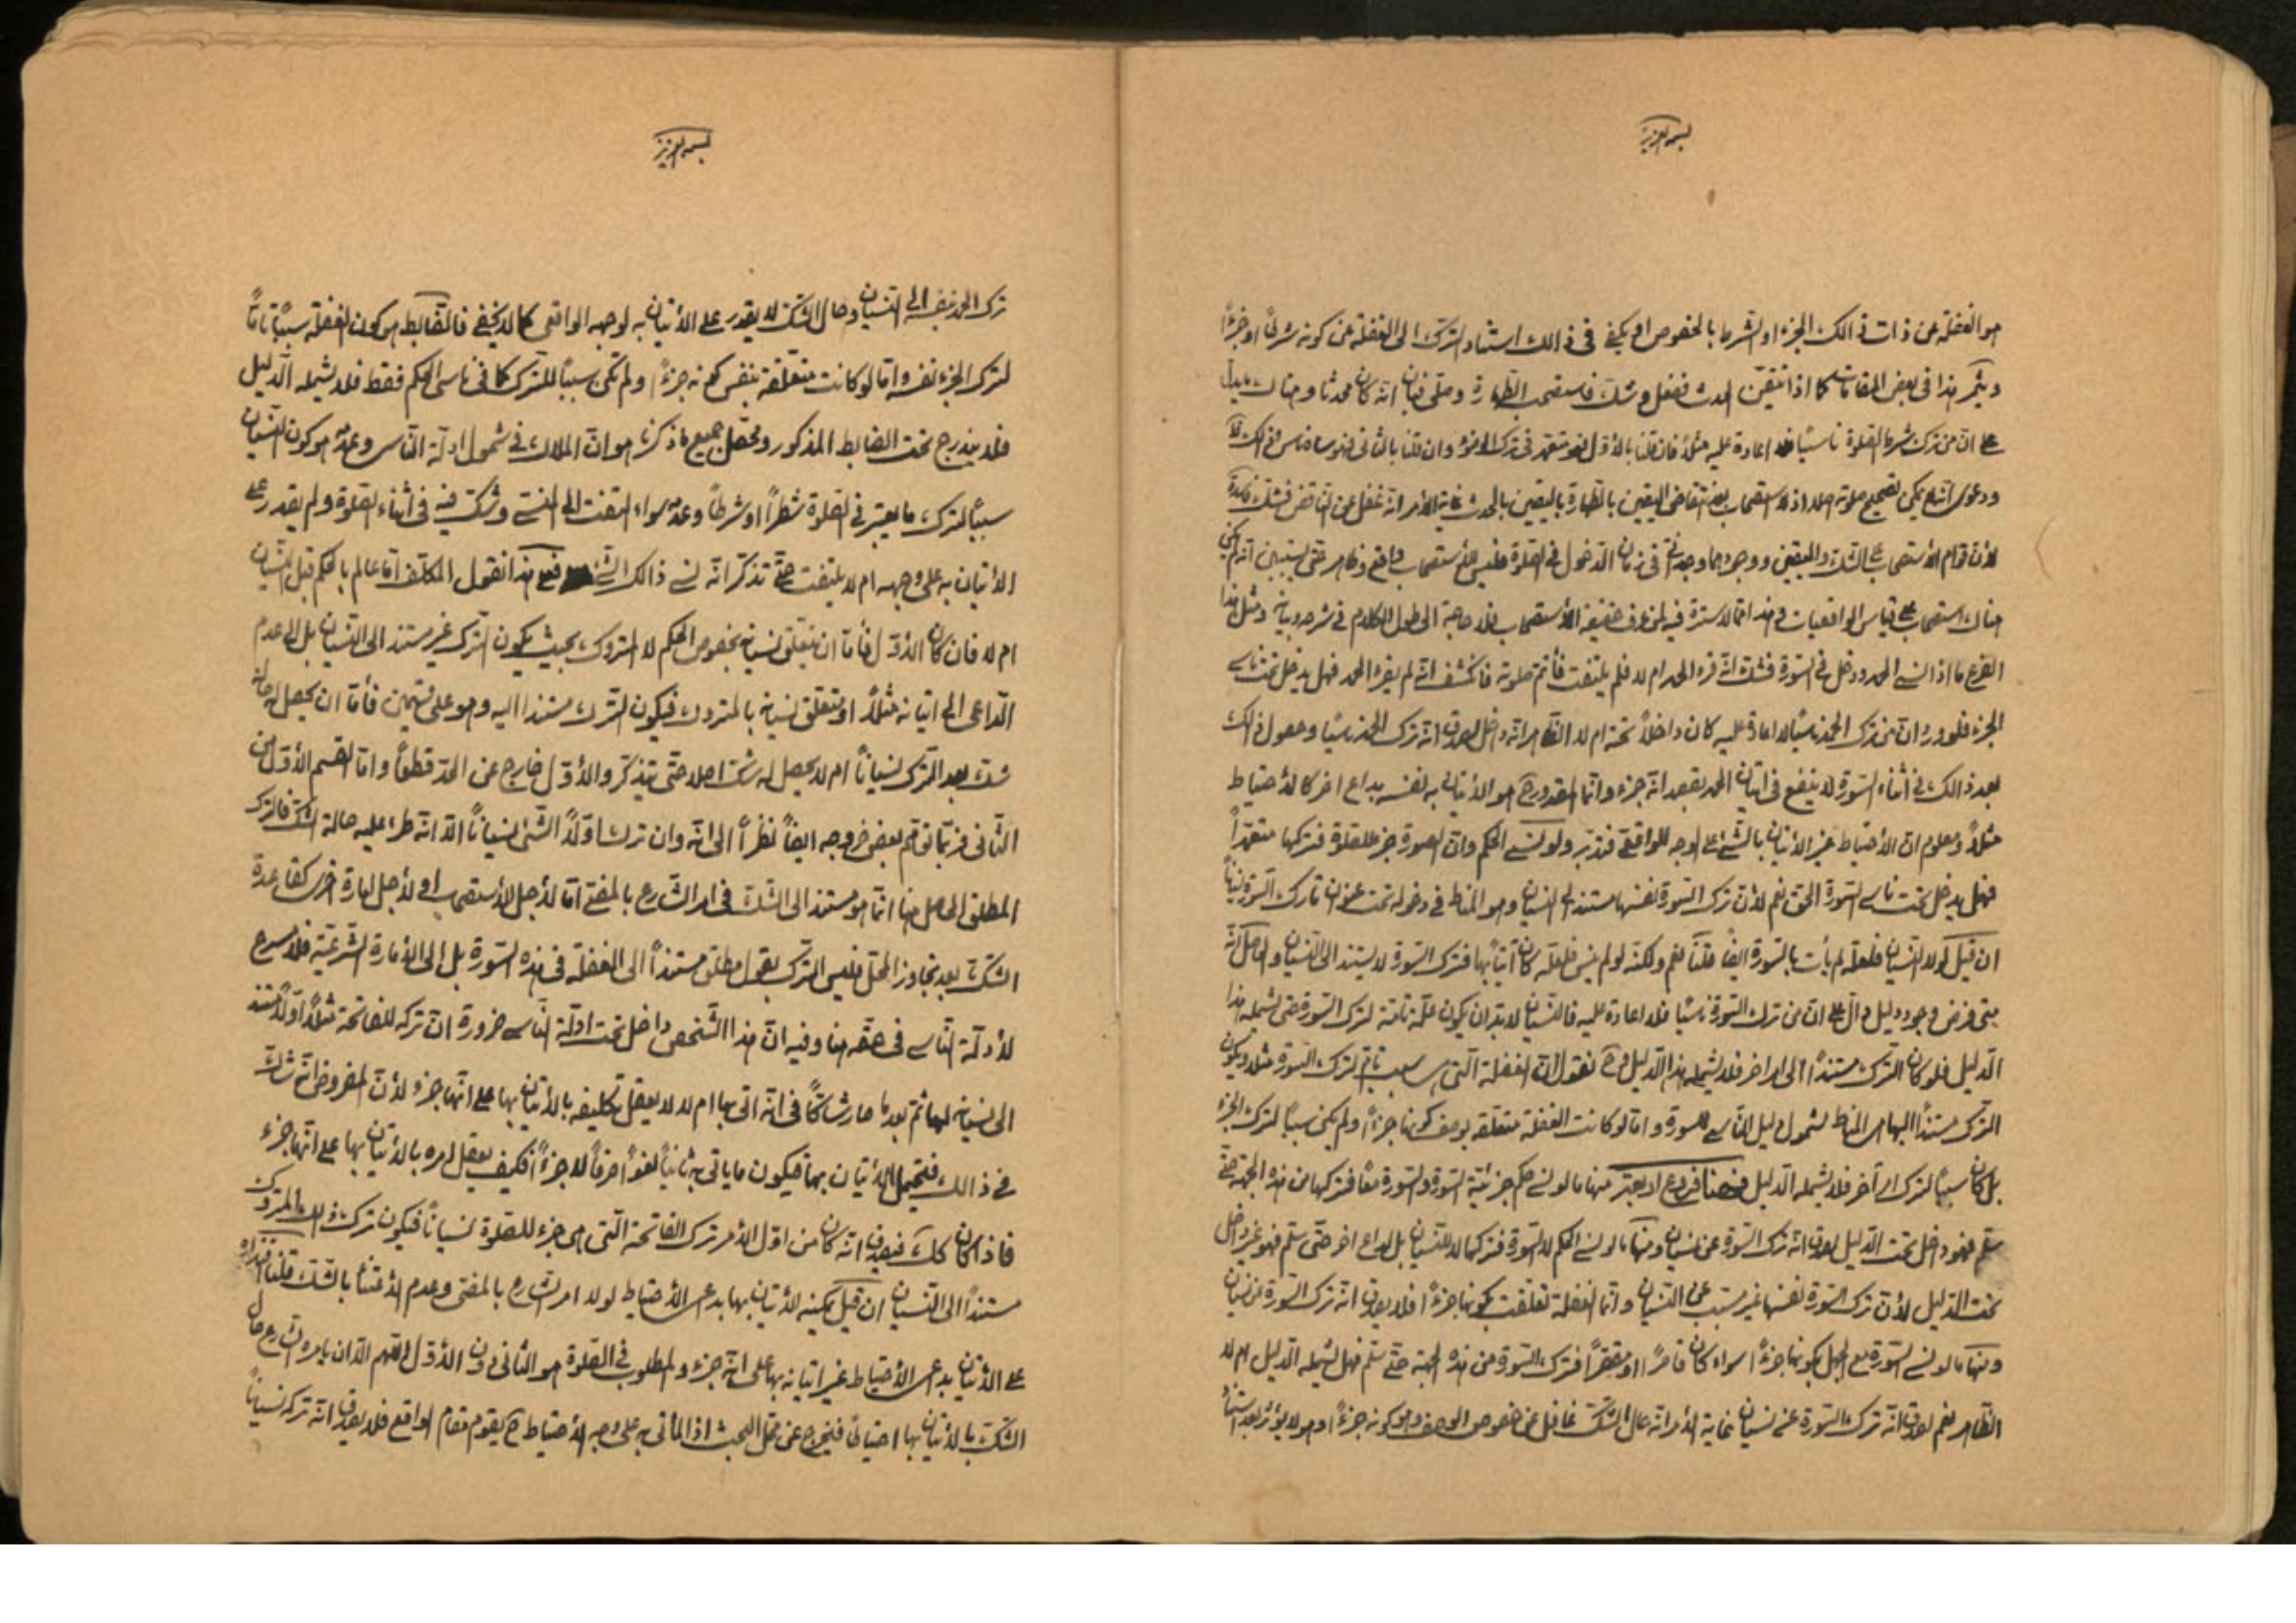 بسمه العزيز
هو الغفلة عن ذات ذالك الجزء او الشرط بالخصوص او يكفى فى ذالك استناد الترك الى الغفلة عن كونه شرطاً او جزءً
ويثمر هذا فى بعض المقامات كما اذا تيقن الحدث فغفل وشك فاستصحب الطهارة وصلى فبان انه كان محدثا وهناك
على ان من ترك شرط الصلوة ناسيًا فلا اعادة عليه مثلاً فان قلنا بالأول فهو متعمد فى ترك الوضوء وان قلنا بالثانى فهو ساه
ودعوى انه يمكن تصحيح صلوته اذ الاستصحاب انتقاض اليقين بالطهارة باليقين بالحدث غاية الأمر انه غفل عن انتقاض
لأن قوام الاستصحاب على الشك واليقين ووجودهما وجدانى فى زمان الدخول فى الصلوة فليس للأستصحاب واقع وظاهر حتى يستبين انه لم يكن
هناك استصحاب على قياس الواقعيات وهذا مما لا سترة فيه لمن عرف حقيقة الأستصحاب فلا حاجة الى طول الكلام فى شرحه وبيانه ومثل هذا
الفرع ما اذا نسى الحمد ودخل فى السورة فشك انه قرء الحمد ام لا فلم يلتفت فأتم صلوته فانكشف انه لم يقرء الحمد فهل يدخل تحت ناسى
الجزء فلو ورد ان من ترك الحمد نسيًا لا اعادة عليه كان داخلاً تحته ام لا الظاهر انه داخل لصدق انه ترك الحمد نسيًا وحصول ذالك
بعد ذالك فى أثناء السورة لا ينفع فى اتيان الحمد بقصد انه جزء وانما المقدور ح هو الأتيان به لنفسه بداع اخر كالأحتياط
مثلاً ومعلوم ان الأحتياط غير الأتيان بالشئ على وجه الواقعى فتدبر ولو نسى الحكم وان السورة جزء للصلوة فتركها متعمّداً
فهل يدخل تحت ناسى السورة الحق نعم لأن ترك السورة نفسها مستند الى النسيان وهو المناط فى دخوله تحت عنوان تارك السورة نسيانًا
ان قيل لولا النسيان فلعله لم يأت بالسورة ايضًا قلنا نعم ولكنه لو لم ينس فلعله كان آتياً بها فترك السورة لا يستند الى النسيان والحاصل انه
متى فرض وجود دليل دال على ان من ترك السورة نسيًا فلا اعادة عليه فالنسيان لا بد ان يكون علة تامة لترك السورة حتى يشمله هذا
الدليل فلو كان الترك مستنداً الى امر اخر فلا يشمله هذا الدليل وح نقول ان الغفلة التى هى سبب تام لترك السورة مثلاً ويكون
الترك مستنداً اليها هى المناط لشمول دليل الناسى للسورة واما لو كانت الغفلة متعلقة بوصف كونها جزءاً ولم يكن سببًا لترك الجزء
بل كان سببًا لترك امر آخر فلا يشمله الدليل فهنا فروع اربعة منها ما لو نسى حكم جزئية السورة والسورة معًا فتركها من هذه الجهة حتى
سلم فهو داخل تحت الدليل لصدق انه ترك السورة عن نسيان ومنها ما لو نسى الحكم لا السورة فتركها لا للنسيان بل لداع اخر حتى سلم فهو غير داخل
تحت الدليل لأن ترك السورة نفسها غير مسبب عن النسيان وانما الغفلة تعلقت بكونها جزءاً فلا يصدق انه ترك السورة عن نسيان
ومنها ما لو نسى السورة مع الجهل بكونها جزءاً سواء كان قاصراً او مقصراً فترك السورة من هذه الجهة حتى سلم فهل يشمله الدليل ام لا
الظاهر نعم لصدق انه ترك السورة عن نسيان غاية الأمر انه حال الشك غافل عن خصوص الوصف وهو كونه جزءاً وهو لا يؤثر بعد استناد
بسمه العزيز
ترك الحمد نفسه الى النسيان وحال الشك لا يقدر على الأتيان به لوجهه الواقعى كما لا يخفى فالضابط هو كون الغفلة سببًا تامًا
لترك الجزء نفسه واما لو كانت متعلقة بنفس كونه جزءً ولم تكن سببًا للترك كما فى ناسى الحكم فقط فلا يشمله الدليل
فلا يندرج تحت الضابط المذكور ومحصل جميع ما ذكرنا هو ان الملاك فى شمول ادلة الناسى وعدمه هو كون النسيان
سببًا لترك ما يعتبر فى الصلوة شطراً او شرطاً وعدمه سواء التفت الى المنسى وشك فيه فى أثناء الصلوة ولم يقدر على
الأتيان به على وجهه ام لا يلتفت حتى تذكر انه نسى ذالك الشئ فعلى هذا نقول المكلف اما عالم بالحكم قبل النسيان
ام لا فان كان الأول فأما ان يتعلق نسيانه بخصوص الحكم لا المتروك بحيث يكون الترك غير مستند الى النسيان بل الى عدم
الداعى الى اتيانه مثلاً او يتعلق نسيانه بالمتروك فيكون الترك مستندا اليه وهو على قسمين فأما ان يحصل له حالة
شك بعد الترك نسيانًا ام لا يحصل له شك اصلا حتى يتذكر والأول خارج عن الحد قطعًا واما القسم الأول من
الثانى فربما توهم بعض خروجه ايضًا نظراً الى انه وان ترك اوّلاً الشئ نسيانًا الا انه طرء عليه حالة الشك فالترك
المطلق الحاصل منها انما هو مستند الى الشك فى امر الشارع بالمضى اما لأجل الأستصحاب او لأجل امارة اخرى كقاعدة
الشك بعد تجاوز المحل فليس الترك بقول مطلق مستنداً الى الغفلة فى هذه السورة بل الى الأمارة الشرعية فلا مسرح
لأدلة الناسى فى حقه هنا وفيه ان هذا الشخص داخل تحت ادلة الناسى ضرورة ان تركه للفاتحة مثلاً اولاً مستند
الى نسيانه لها ثم بعدها صار شاكًا فى انه اتى بها ام لا لا يعقل تكليفه بالأتيان بها على انها جزء لأن المفروض انه شاك
فى ذالك فيحتمل الأتيان بها فيكون ما ياتى به ثانيًا لغواً صرفاً لا جزءاً فكيف يعقل امره بالأتيان بها على انها جزء
فاذا كان كك فيصدق انه كان من اول الأمر ترك الفاتحة التى هى جزء للصلوة نسيانًا فيكون ترك ذالك المتروك
مستنداً الى النسيان ان قيل يمكنه الأتيان بها بداعى الأحتياط لولا امر الشارع بالمضى وعدم الأعتناء بالشك قلنا
على الأتيان بداعى الأحتياط غير اتيانه بها على انه جزء والمطلوب فى الصلوة هو الثانى دون الأول اللهم الا ان يامره الشارع حال
الشك بالأتيان بها احتياطًا فيخرج عن محل البحث اذ المأتى به على وجه الأحتياط ح يقوم مقام الواقع فلا يصدق انه تركه نسيانًا